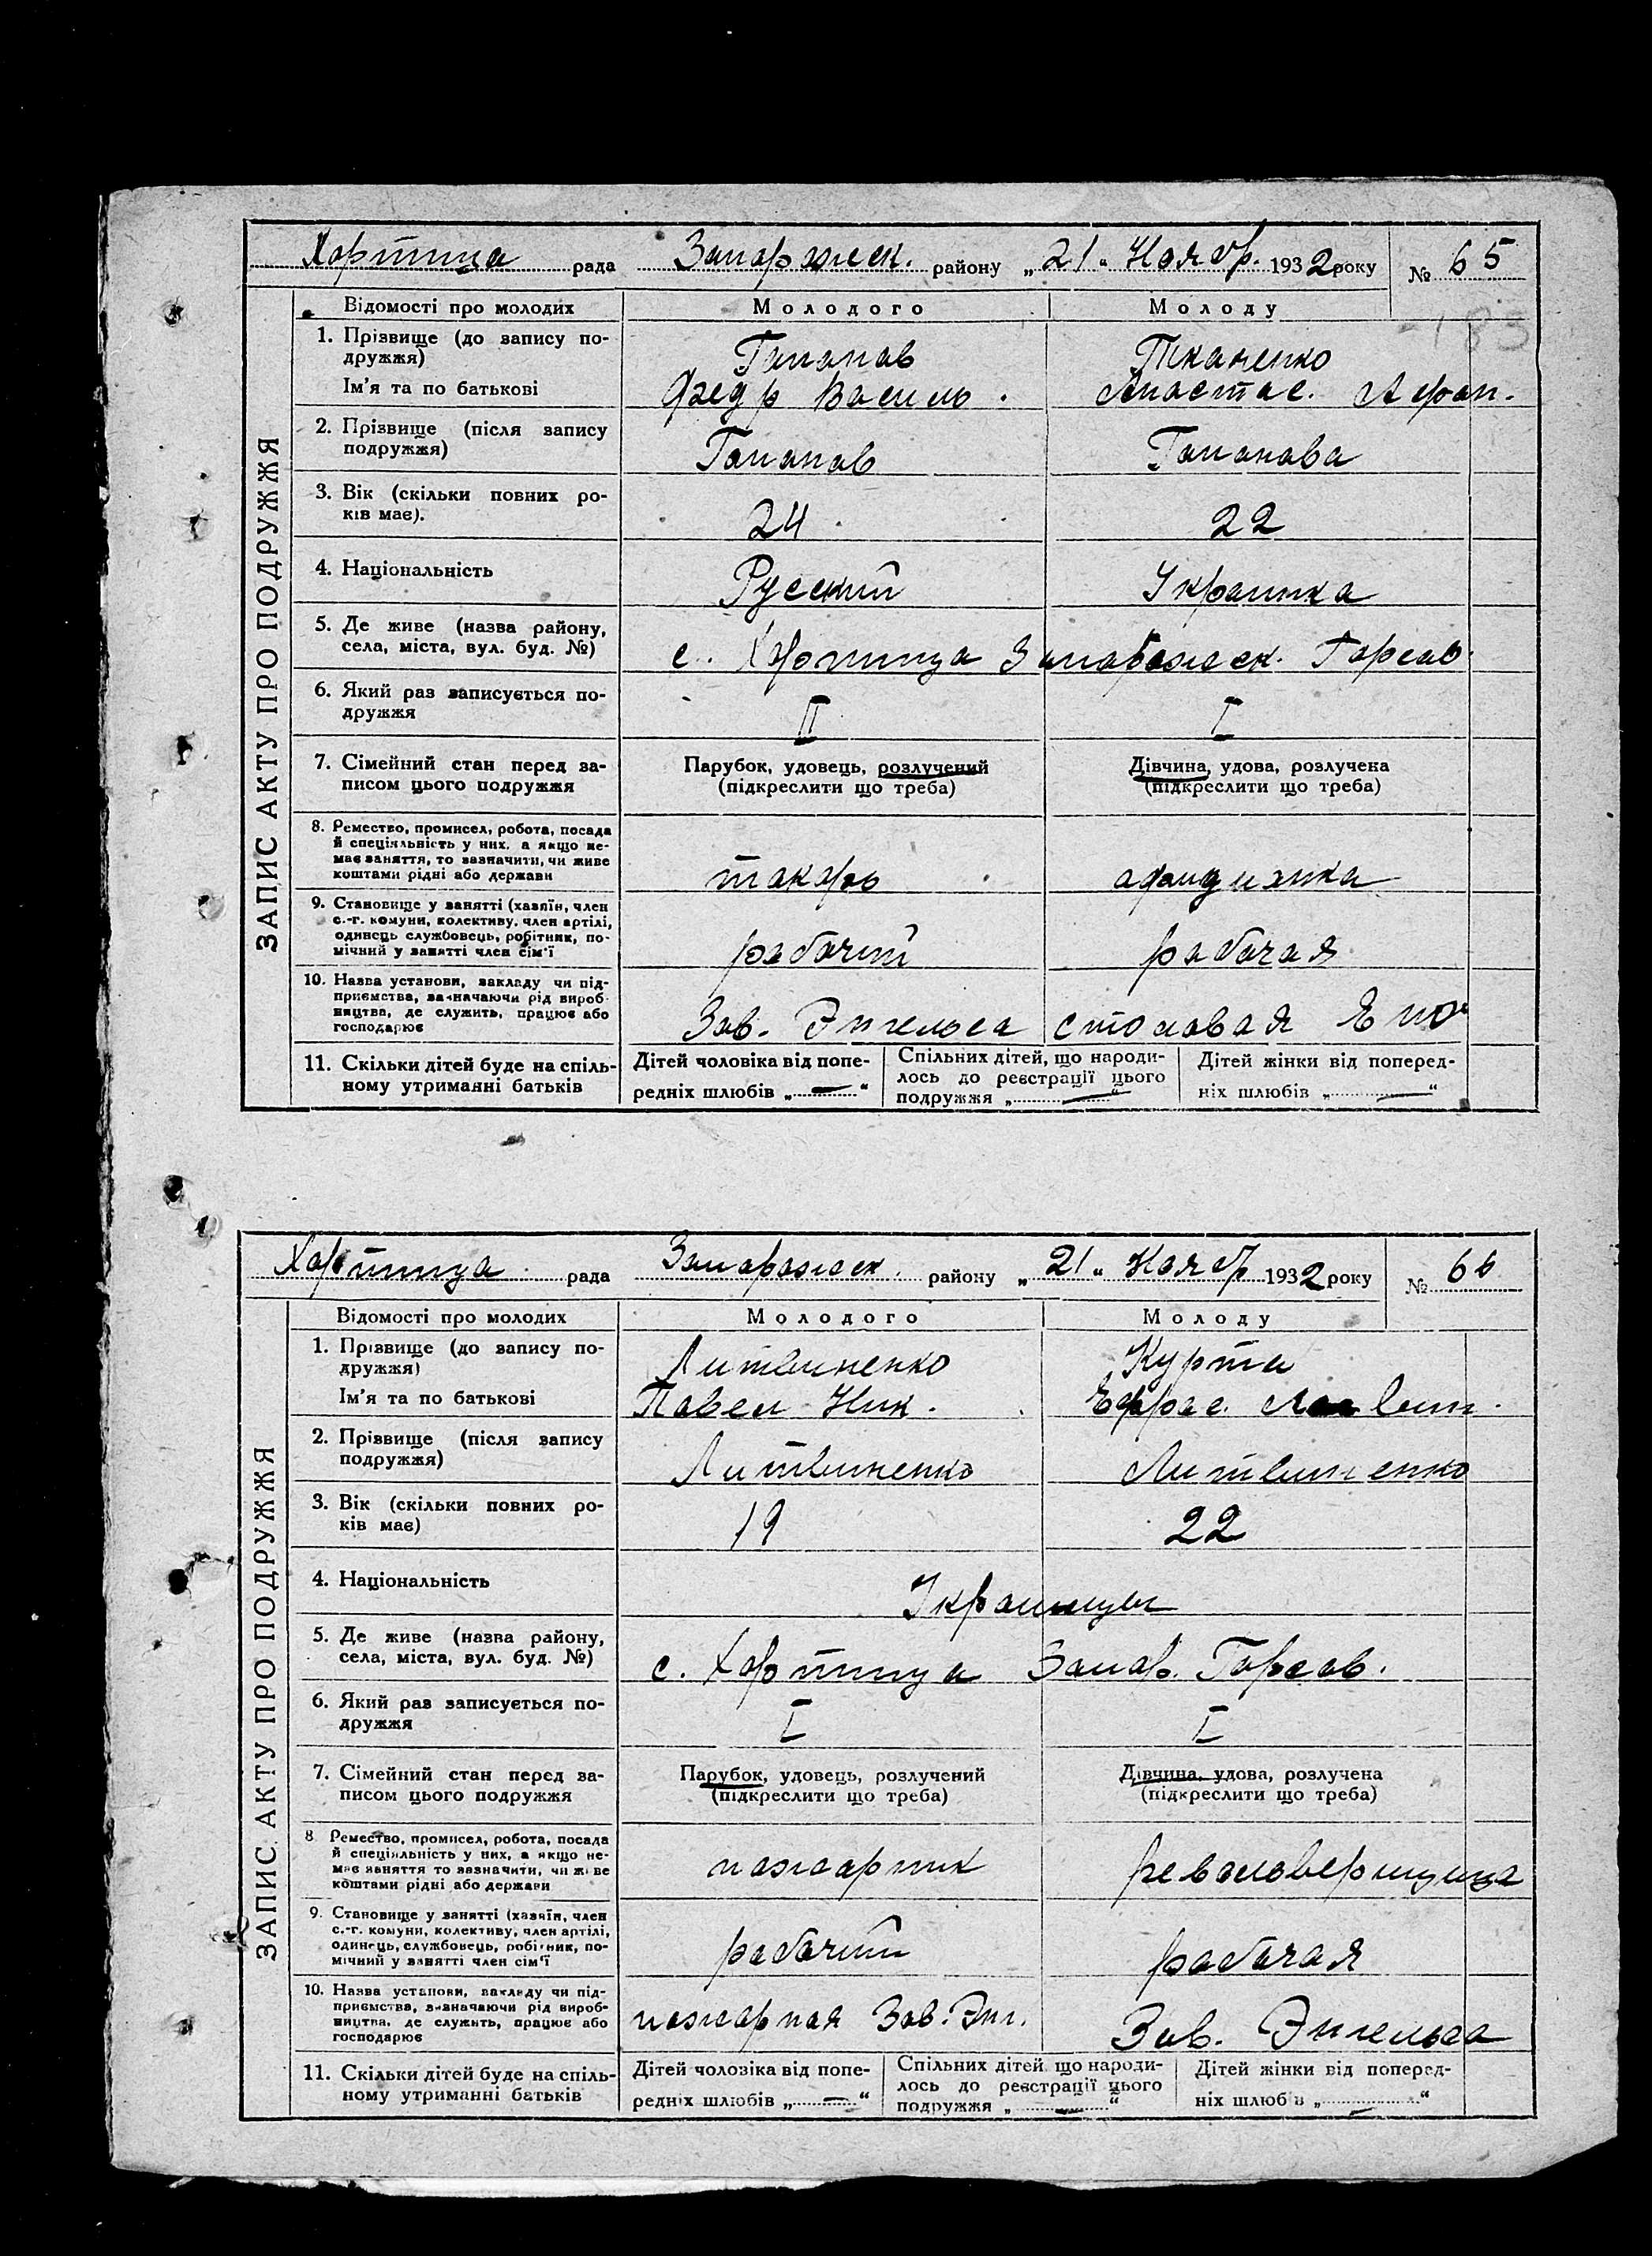 Хортица рада Запорожск. району „21" Ноябр. 1932 року № 65
ЗАПИС АКТУ ПРО ПОДРУЖЖЯ
Відомості про молодих Молодого Молоду
1. Прізвище (до запису по-
дружжя) Ткаченко
Ім'я та по батькові Федр Василь. Анастас. Афан.
2. Прізвище (після запису
подружжя)
3. Вік (скільки повних ро-
ків має). 24 22
4. Національність Русский Украинка
5. Де живе (назва району,
села, міста, вул. буд. №) с. Хортица Запорожск. Горсов.
6. Який раз записується по-
дружжя II I
7. Сімейний стан перед за-
писом цього подружжя
Парубок, удовець, розлучений
(підкреслити що треба)
Дівчина, удова, розлучена
(підкреслити що треба)
8. Ремество, промисел, робота, посада
й спеціяльність у них, а якщо не-
має заняття, то зазначити, чи живе
коштами рідні або держави токарь
9. Становище у занятті (хазяїн, член
с.-г. комуни, колективу, член артілі,
одинець службовець, робітник, по-
мічний у занятті член сім'ї рабочий рабочая
10. Назва установи, закладу чи під-
приємства, зазначаючи рід вироб-
ництва, де служить, працює або
господарює Зав. Энгельса столовая
11. Скільки дітей буде на спіль-
ному утриманні батьків
Дітей чоловіка від попе-
редніх шлюбів „—"
Спільних дітей, що народи-
лось до реєстрації цього
подружжя „—"
Дітей жінки від поперед-
ніх шлюбів „—"
Хортица рада Запорожск. району „21" Ноябр 1932 року № 66
ЗАПИС АКТУ ПРО ПОДРУЖЖЯ
Відомості про молодих Молодого Молоду
1. Прізвище (до запису по-
дружжя) Литвиненко Курта
Ім'я та по батькові Павел Ник. Ефрос.
2. Прізвище (після запису
подружжя) Литвиненко Литвиненко
3. Вік (скільки повних ро-
ків має) 19 22
4. Національність Украинцы
5. Де живе (назва району,
села, міста, вул. буд. №) с. Хортица Запор. Горсов.
6. Який раз записується по-
дружжя I I
7. Сімейний стан перед за-
писом цього подружжя
Парубок, удовець, розлучений
(підкреслити що треба)
Дівчина, удова, розлучена
(підкреслити що треба)
8 Ремество, промисел, робота, посада
й спеціяльність у них, а якщо не-
має заняття то зазначити, чи живе
коштами рідні або держави пожарник револьверщица
9. Становище у занятті (хазяїн, член
с.-г. комуни, колективу, член артілі,
одинець, службовець, робітник, по-
мічний у занятті член сім'ї рабочий рабочая
10. Назва установи, закладу чи під-
приємства, зазначаючи рід вироб-
ництва, де служить, працює або
господарює пожарная Зав. Энг. Зав. Энгельса
11. Скільки дітей буде на спіль-
ному утриманні батьків
Дітей чоловіка від попе-
редніх шлюбів „—"
Спільних дітей що народи-
лось до реєстрації цього
подружжя „—"
Дітей жінки від поперед-
ніх шлюбів „—"